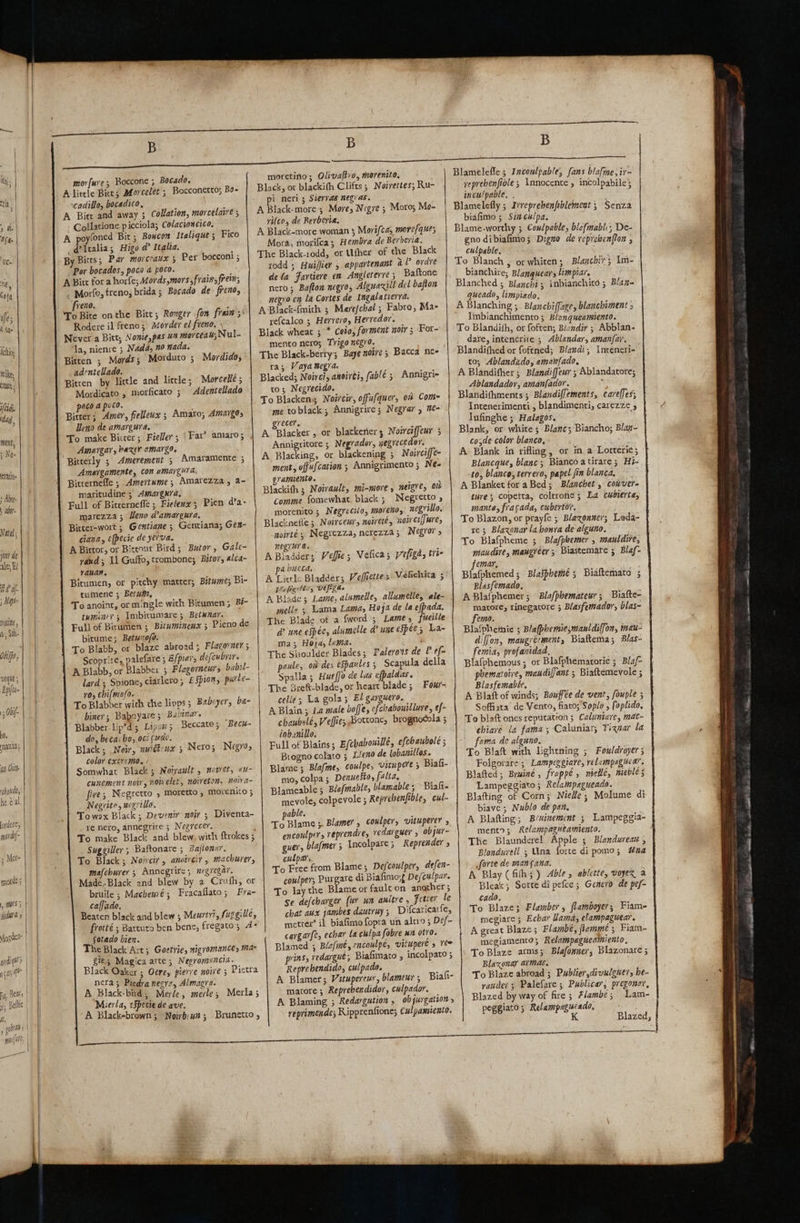 B
morsure; Boccone; Bocado.
A little Bitt; Morcelet; Bocconetto; Bo-
cadillo, bocadico.
A Bitt and away; Collation, morcelaire;
Collatione picciola; Colacioncico.
A poysoned Bit; Boucon Italique; Fico
d'Italia; Higo d' Italia.
By Bitts; Par morceaux; Per bocconi;
Por bocados, poco a poco.
A Bitt for a horse; Mords, mors, frain, frein;
Morso, freno, brida; Bocado de freno,
freno.
To Bite on the Bitt; Ronger son frain;
Rodere il freno; Morder el freno.
Never a Bitt; Nonie, pas un morceau; Nul-
la, niente; Nada, no nada.
Bitten; Mords; Morduto; Mordido,
adentellado.
Bitten by little and little; Morcellé;
Mordicato, morsicato; Adentellado
poco a poco.
Bitter; Amer, fielleux; Amaro; Amargo,
lleno de amargura.
To make Bitter; Fieller; Far' amaro;
Amargar, hazer amargo.
Bitterly; Amerement; Amaramente;
Amargamente, con amargura.
Bitternesse; Amertume; Amarezza, a-
maritudine; Amargura.
Full of Bitternesse; Fieleux; Pien d'a-
marezza; lleno d'amargura.
Bitter-wort; Gentiane; Gentiana; Gen-
ciana, especie de yerva.
A Bittor, or Bittour Bird; Butor, Gale-
rand; Il Guffo, trombone; Bitor, alca-
ravan.
Bitumen, or pitchy matter; Bitume; Bi-
tumene; Betum.
To anoint, or mingle with Bitumen; Bi-
tuminer; Imbitumare; Betunar.
Full of Bitumen; Bitumineux; Pieno de
bitume; Betunoso.
To Blabb, or blaze abroad; Flagorner;
Scoprire, palesare; Espiar, descubrir.
A Blabb, or Blabber; Flagorneur, babil-
lard; Spione, ciarlero; Espion, parle-
ro, chismoso.
To Blabber with the lipps; Baboyer, ba-
biner; Baboyare; Babinar.
Blabber lip'd; Lippu; Beccato; Becu-
do, bocarbo, ocicudo.
Black; Noir, nuicteux; Nero; Negro,
color extremo.
Somwhat Black; Noirault, novet, au-
cunement noir, noirelet, noireton, noira-
stre; Negretto, moretto, morenito;
Negrito, negrillo.
To wax Black; Devenir noir; Diventa-
re nero, annegrire; Negrecer.
To make Black and blew with strokes;
Suggiller; Bastonare; Bastonar.
To Black; Noircir, anoircir, machurer,
maschurer; Annegrire; negregar.
Made-Black and blew by a Crush, or
bruise; Macheuré; Fracassato; Fra-
cassado.
Beaten black and blew; Meurtri, suggillé,
frotté; Battuto ben bene, fregato; A-
sotado bien.
The Black Art; Goetrie, nigromance, ma-
gie; Magica arte; Negromancia.
Black Oaker; Ocre, pierre noire; Pietra
nera; Piedra negra, Almagra.
A Black-bird; Merle, merle; Merla;
Mierla, especie de ave.
A Black-brown; Noirbrun; Brunetto,
B
moretino; Olivastro, morenito.
Black, or blackish Clifts; Noirettes; Ru-
pi neri; Sierras negras.
A Black-more; More, Negre; Moro; Mo-
risco, de Berberia.
A Black-more woman; Morisca, moresque;
Mora, morisca; Hembra de Berberia.
The Black-rodd, or Usher of the Black
rodd; Huissier, appartenant à l' ordre
de la Jartiere en Angleterre; Bastone
nero; Baston negro, Alguazill del baston
negro en la Cortes de Ingalatierra.
A Black-smith; Mareschal; Fabro, Ma-
rescalco; Herrero, Herredor.
Black wheat; * Coio, forment noir; For-
mento nero; Trigo negro.
The Black-berry; Baye noire; Bacca ne-
ra; Vaya negra.
Blacked; Noirci, anoirci, fablé; Annigri-
to; Negrecido.
To Blacken; Noircir, offusquer, où Com-
me to black; Annigrire; Negrar, ne-
grecer.
A Blacker, or blackener; Noircisseur;
Annigritore; Negrador, negrecedor.
A Blacking, or blackening; Noircisse-
ment, offuscation; Annigrimento; Ne-
gramiento.
Blackish; Noirault, mi-more, neigre, où
Comme somewhat black; Negretto,
morenito; Negrecito, moreno, negrillo.
Blacknesse; Noirceur, noireté, noircissure,
noirté; Negrezza, nerezza; Negror,
negrura.
A Bladder; Vessie; Vesica; vesiga, tri-
pa hueca.
A Little Bladder; Vessiette; Vesichica;
Vesiguilla, vesiga.
A Blade; Lame, alumelle, allumelle, ale-
melle; Lama Lama, Hoja de la espada.
The Blade of a sword; Lame, fueille
d' une espée, alumelle d' une espée; La-
ma; Hoja, lama.
The Shoulder Blades; Palerons de l' es-
paule, où des espaules; Scapula della
Spalla; Huesso de las espaldas.
The Brest-blade, or heart blade; Four-
celle; La gola; El garguero.
A Blain; La male bosse, eschabouillure, es-
chaubolé, Vessie; Bottone, brognocola;
lobanillo.
Full of Blains; Eschabouillé, eschaubolé;
Brognocolato; Lleno de lobanillos.
Blame; Blasme, coulpe, vitupere; Biasi-
mo, colpa; Denuesto, falta.
Blameable; Blasmable, blamable; Biasi-
mevole, colpevole; Reprehensible, cul-
pable.
To Blame; Blamer, coulper, vituperer,
encoulper, reprendre, redarguer, objur-
guer, blasmer; Incolpare; Reprender,
culpar.
To Free from Blame; Descoulper, desen-
coulper; Purgare di Biasimo; Desculpar.
To lay the Blame or fault on another;
Se descharger sur un aultre, Jetter le
chat aux jambes dautruy; Discaricarse,
metter' il biasimo sopra un altro; Des-
cargarse, echar la culpa sobre un otro.
Blamed; Blasmé, encoulpé, vituperé, re-
prins, redargué; Biasimato, incolpato;
Reprehendido, culpado.
A Blamer; Vitupereur, blameur; Biasi-
matore; Reprehendidor, culpador.
A Blaming; Redargution, objurgation,
reprimende; Ripprensione; Culpamiento.
B
Blamelesse; Incoulpable, sans blasme, ir-
reprehensible; Innocente, incolpabile;
inculpable.
Blamelesly; Irreprehensiblement; Senza
biasimo; Sin culpa.
Blame-worthy; Coulpable, blasmable; De-
gno di biasimo; Digno de reprehension,
culpable.
To Blanch, or whiten; Blanchir; Im-
bianchire; Blanquear, limpiar.
Blanched; Blanchi; inbianchito; Blan-
queado, limpiado.
A Blanching; Blanchissage, blanchiment;
Imbianchimento; Blanqueamiento.
To Blandish, or soften; Blandir; Abblan-
dare, intenerire; Ablandar, amansar.
Blandished or softned; Blandi; Inteneri-
to; Ablandado, amansado.
A Blandisher; Blandisseur; Ablandatore;
Ablandador, amansador.
Blandishments; Blandissements, caresses;
Intenerimenti, blandimenti, carezze,
lusinghe; Halagos.
Blank, or white; Blanc; Biancho; Blan-
co; de color blanco.
A Blank in rifling, or in a Lotterie;
Blancque, blanc; Bianco a tirare; Hi-
to, blanco, terrero, papel sin blanca.
A Blanket for a Bed; Blanchet, couver-
ture; copetta, coltrone; La cubierta,
manta, fraçada, cubertor.
To Blazon, or prayse; Blazonner; Loda-
re; Blazonar la honra de alguno.
To Blaspheme; Blasphemer, mauldire,
maudire, maugréer; Biastemare; Blas-
femar.
Blasphemed; Blasphemé; Biastemato;
Blasfemado.
A Blasphemer; Blasphemateur; Biaste-
matore, rinegatore; Blasfemador, blas-
femo.
Blasphemie; Blasphemie, mauldisson, mau-
disson, maugreement; Biastema; Blas-
femia, profanidad.
Blasphemous, or Blasphematorie; Blas-
phematoire, maudissant; Biastemevole;
Blasfemable.
A Blast of winds; Bouffée de vent, souple;
Soffiata de Vento, fiato; Soplo, soplido.
To blast ones reputation; Caluniare, mac-
chiare la fama; Caluniar, Tiznar la
fama de alguno.
To Blast with lightning; Fouldroyer;
Folgorare; Lampeggiare, relampaguear.
Blasted; Bruiné, frappé, niellé, nieblé;
Lampeggiato; Relampagueado.
Blasting of Corn; Nielle; Molume di
biave; Nublo de pan.
A Blasting; Bruinement; Lampeggia-
mento; Relampagueamiento.
The Blaunderel Apple; Blandureau,
Blondurell; Una sorte di pomo; Una
sorte de mançana.
A Blay (fish;) Able, ablette, voyez a
Bleak; Sorte di pesce; Genero de pes-
cado.
To Blaze; Flamber, flamboyer; Fiam-
megiare; Echar llama, elampaguear.
A great Blaze; Flambé, flammé; Fiam-
megiamento; Relampagueamiento.
To Blaze arms; Blasonner; Blazonare;
Blazonar armas.
To Blaze abroad; Publier, divulguer, be-
rauder; Palesare; Publicar, pregonar.
Blazed by way of fire; Flambé; Lam-
peggiato; Relampagueado.
K Blazed,